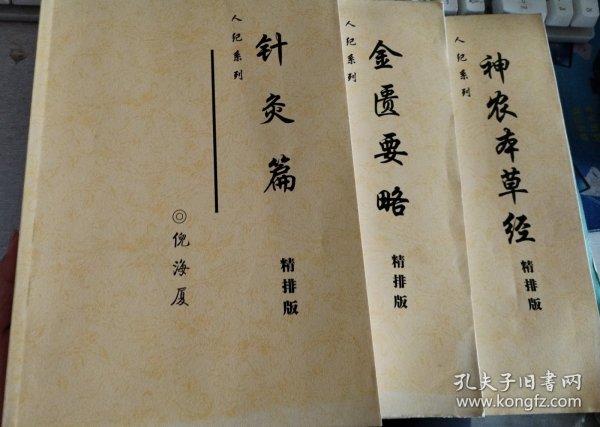 人纪系列
针灸篇
◎倪海厦
精排版
人纪系列
金匮要略
精排版
人纪系列
神农本草经
精排版
孔夫子旧书网
www.kongfz.com